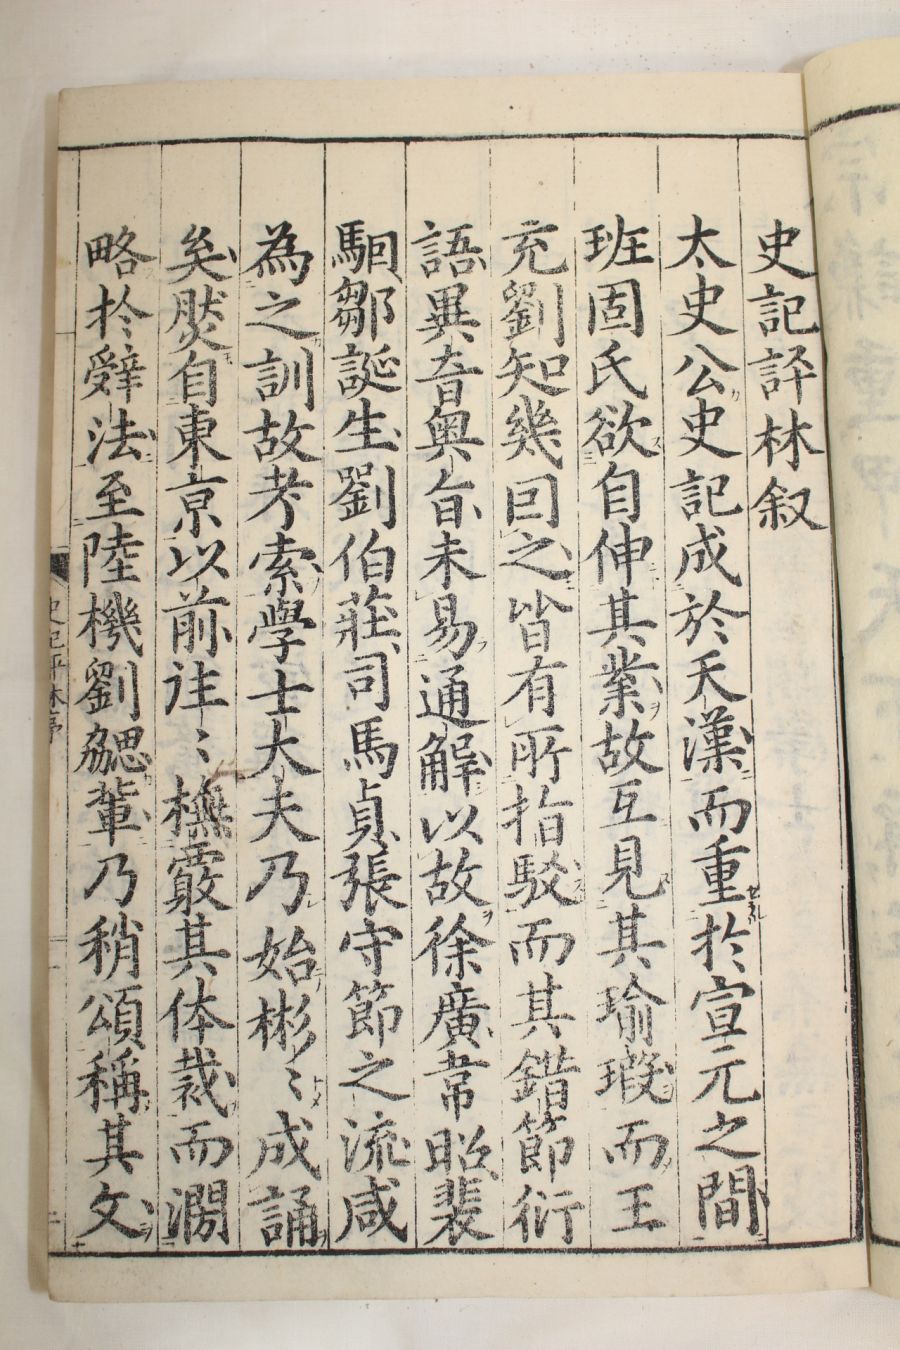 史記評林叙
太史公史記成於天漢而重於宣元之間
班固氏欲自伸其業故互見其瑜瑕而王
充劉知幾回之皆有所指駁而其錯節衍
語異音奥旨未易通解以故徐廣韋昭裴
駰鄒誕生劉伯莊司馬貞張守節之流咸
為之訓故考索學士大夫乃始彬〻成誦
矣然自東京以前往〻橅覈其体裁而濶
略於辭法至陸機劉勰輩乃稍頌稱其文
史記評林序